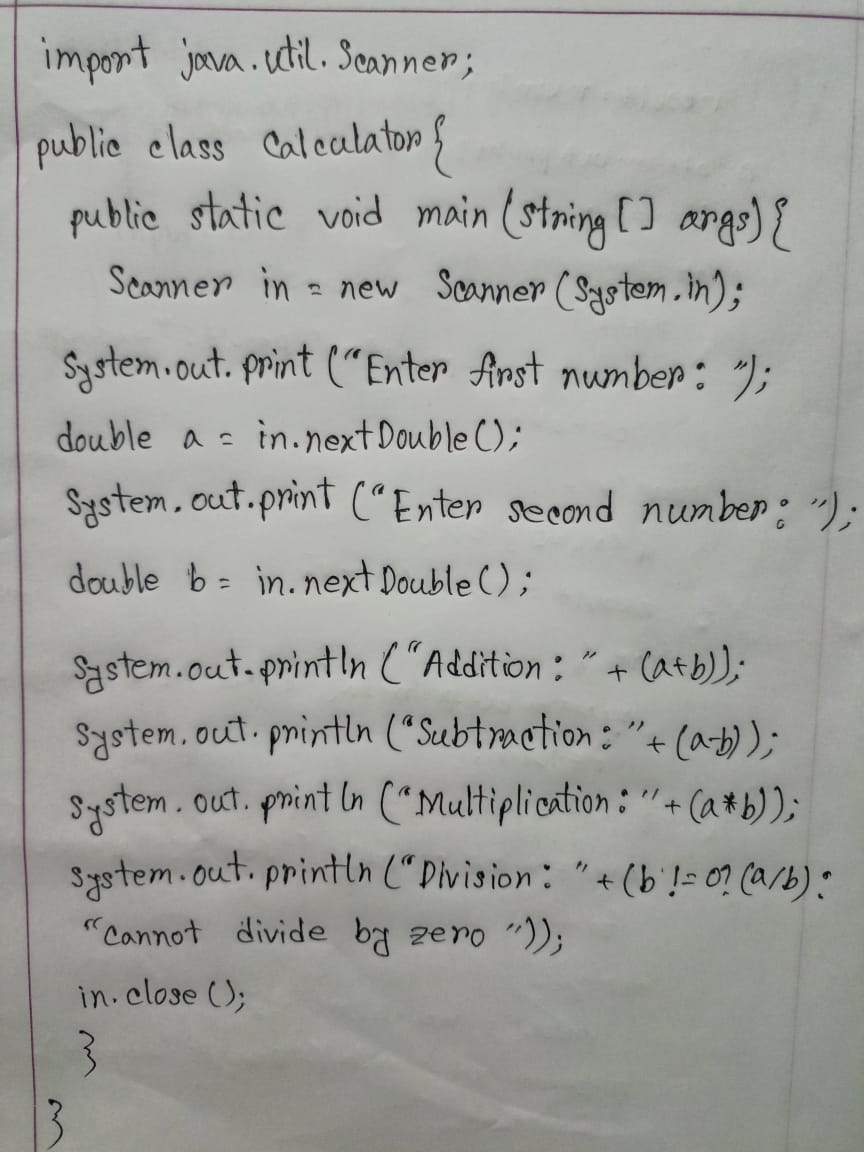 import java.util.Scanner;
public class Calculator{
public static void main (string [] args){
Scanner in = new Scanner (System.in);
System.out.print ("Enter first number: ");
double a = in.nextDouble();
System.out.print ("Enter second number: ");
double b = in.nextDouble();
System.out.println ("Addition: " + (a+b));
System.out.println ("Subtraction: "+ (a-b));
System.out.println ("Multiplication: "+ (a*b));
System.out.println ("Division: " + (b != 0? (a/b):
"Cannot divide by zero "));
in.close();
}
}